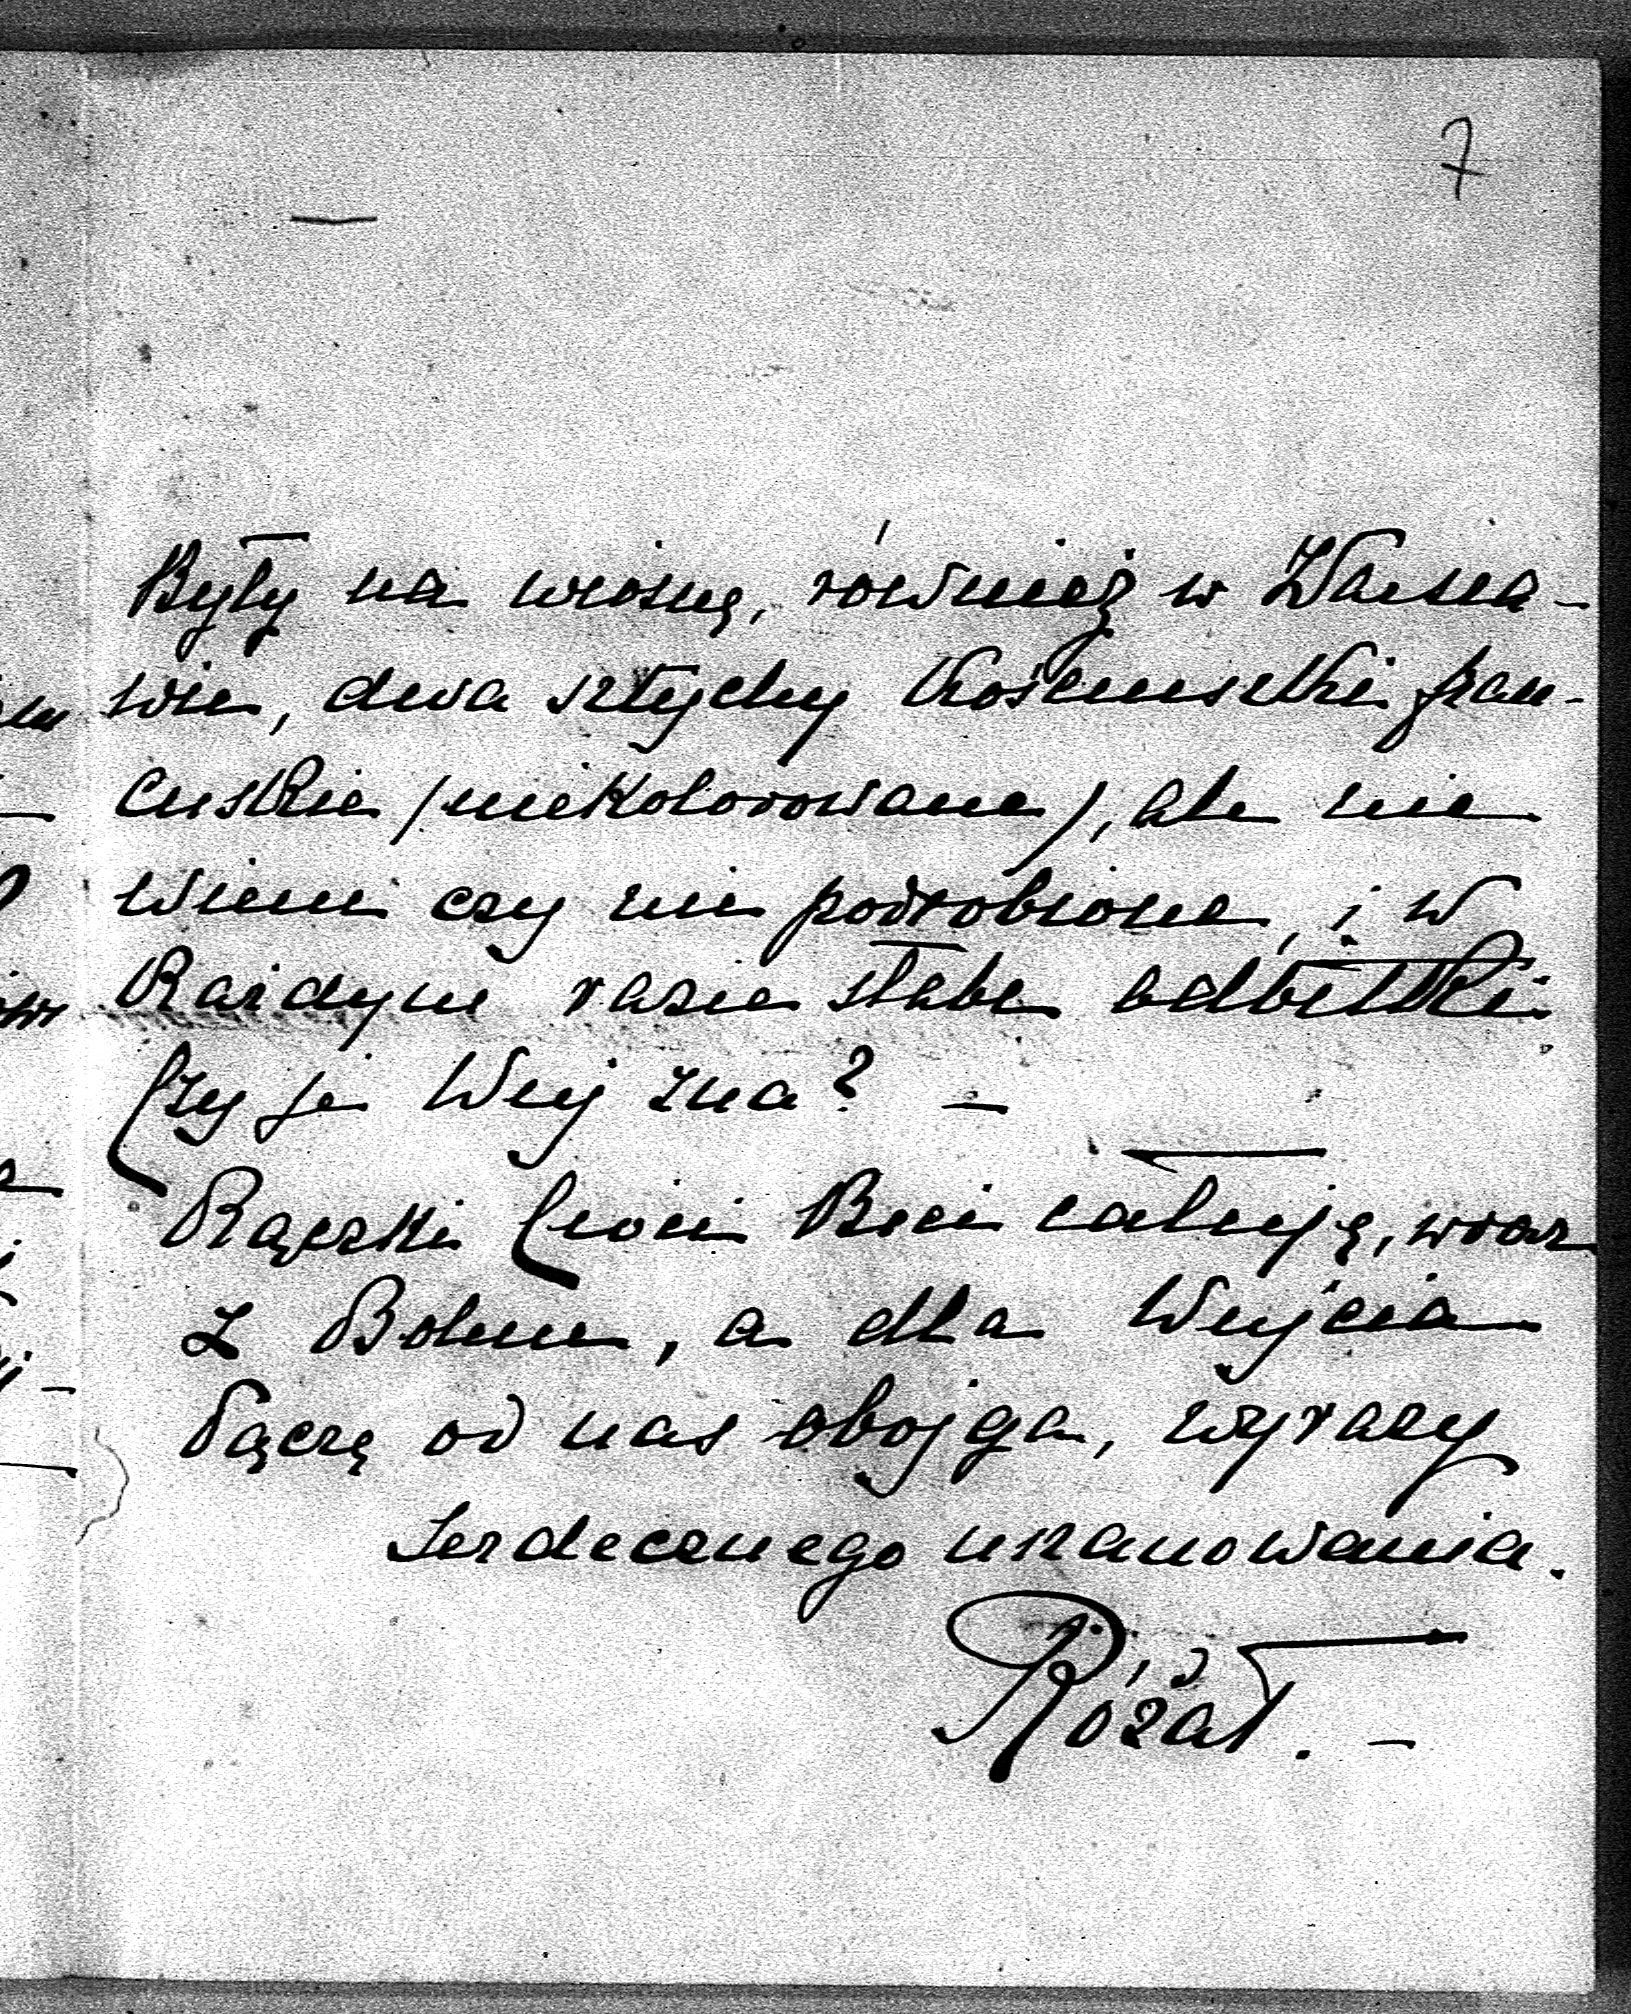 7
Były na wiosnę, również w Warsza-
wie, dwa sztychy Kościuszki fran-
cuskie /niekolorowane/, ale nie
wiem czy nie podrobione, i w
każdym razie słabe odbitki.
Czy je Wuj zna? –
Rączki Cioci Beci całuję, wraz
z Bolem, a dla Wujcia
łączę od nas obojga, wyrazy
serdecznego uszanowania.
Różał. –